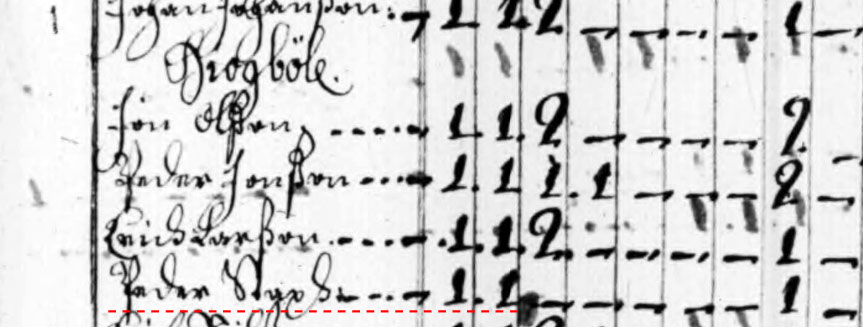 Johan Johanßon. 1 1 2 – – – – 1 –
bÿle.
Jon Olßon, 1 1. 2 – – – – 2.
Peder Jonßon 1. 1 1. 1 – – – 2 –
Erich Larßon. 1. 1 2 – – – – 1 –
Peder 1. 1 – – – – 1 –